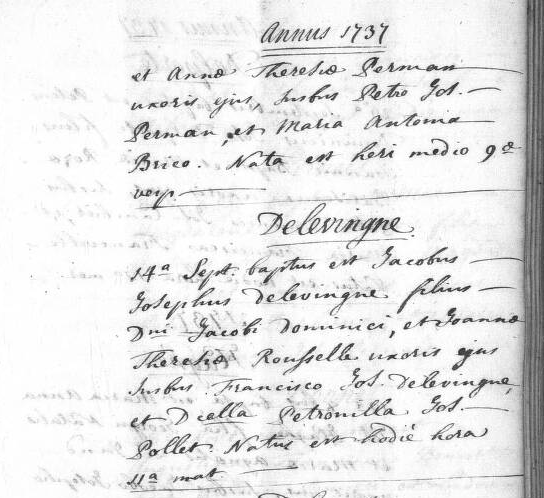 Annus 1737
et Annæ Theresiæ Perman
uxoris ejus, susbus Petro Jos.
Perman, et Maria Antonia
Brico. Nata est heri medio 9æ
vesp.
Delevingne
14a Sept. baptus est Jacobus
Josephus Delevingne filius
Dni Jacobi Dominici, et Joannæ
Theresiæ Rousselle uxoris ejus
susbus Francisco Jos. Delevingne,
et Dicella Petronilla Jos.
Pollet Natus est hodiè hora
11a mat.